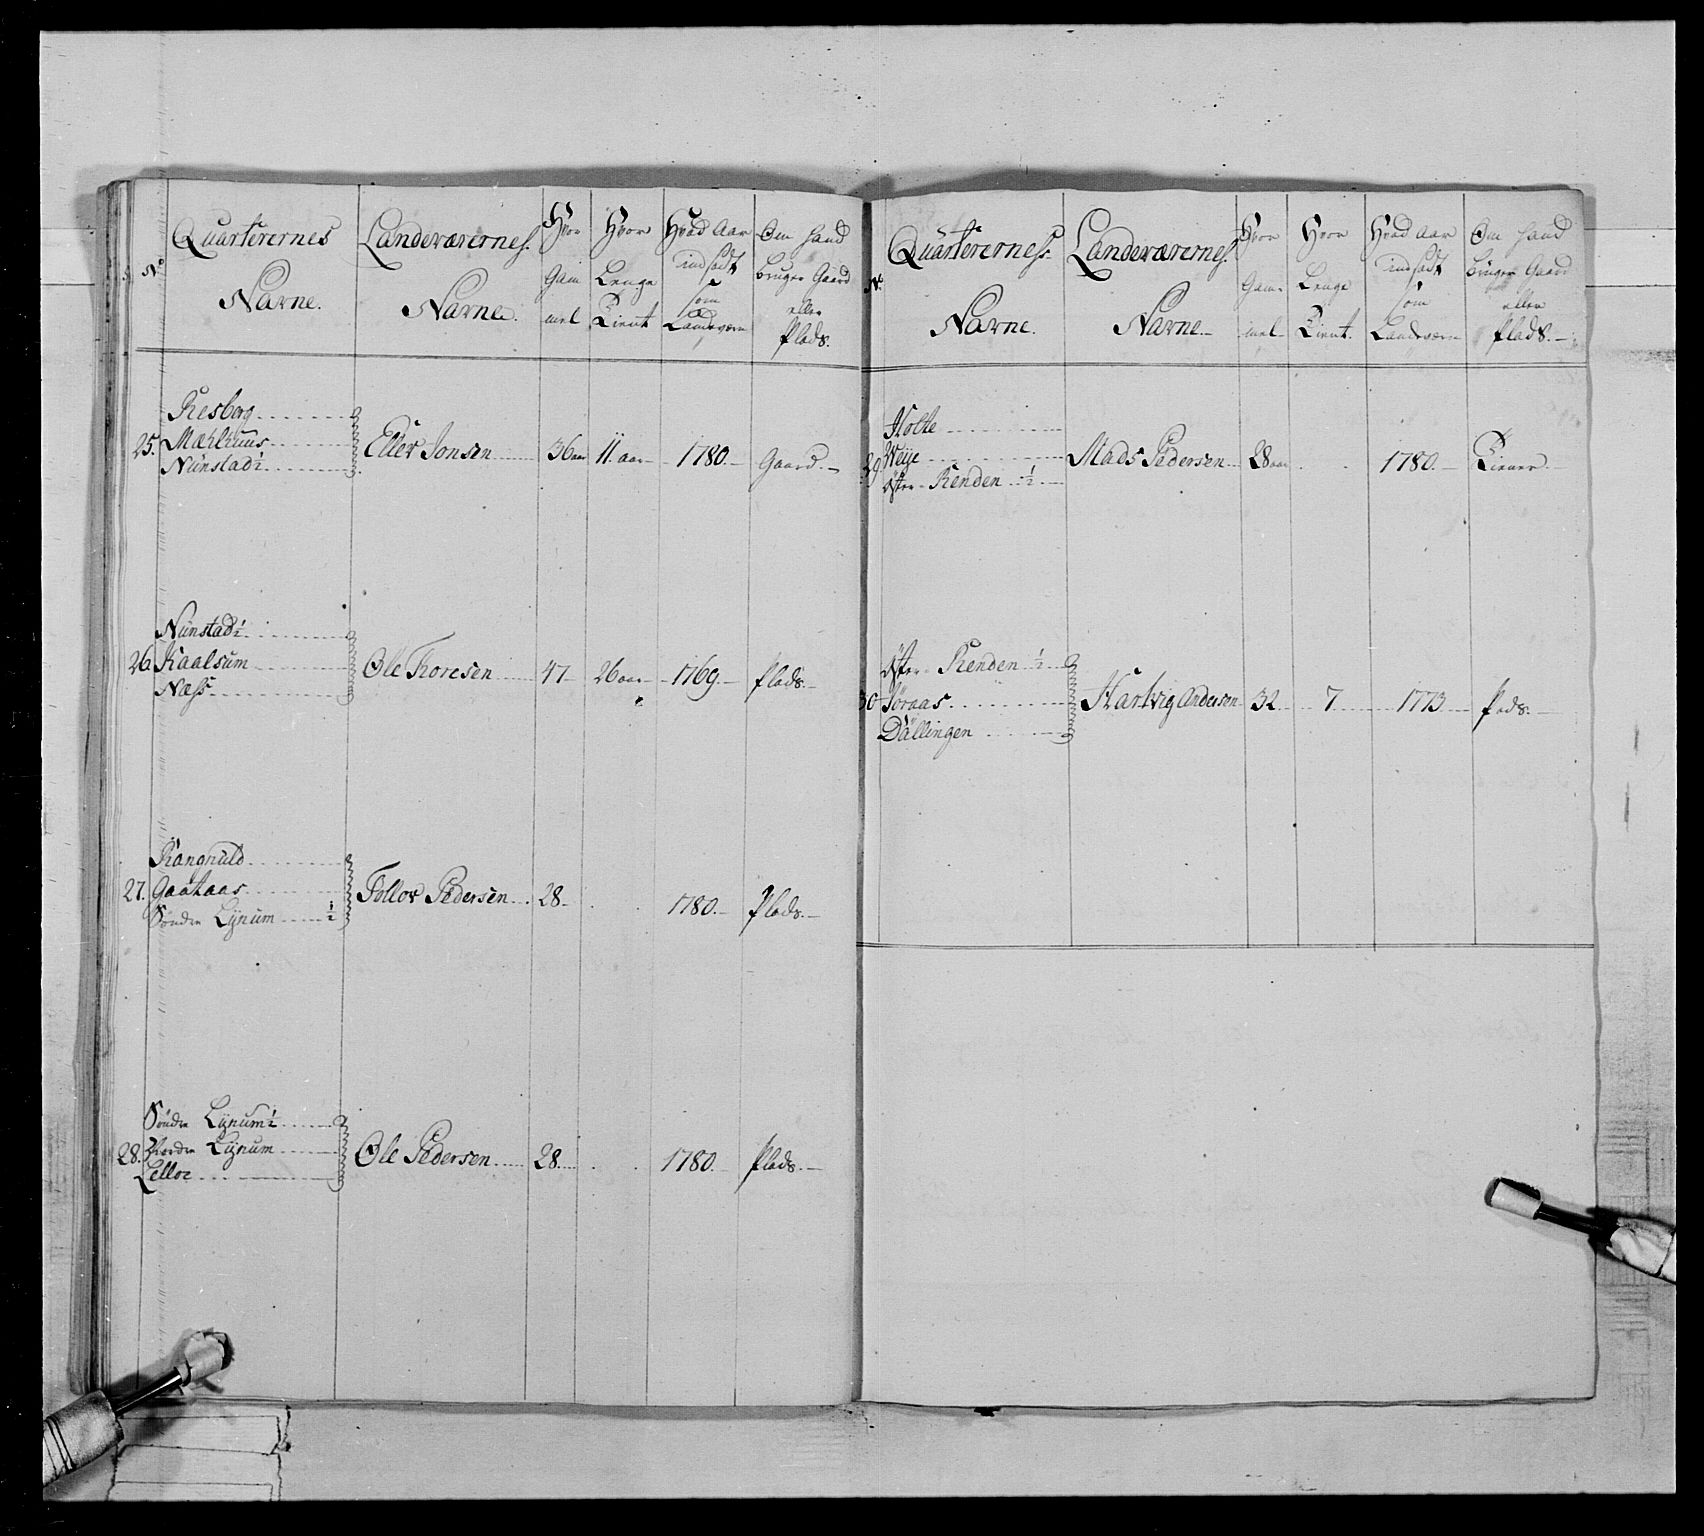 No
Quarterernes
Nafne.
Landeværernes.
Nafne.
Hvor
Gam
mel
Hvor
Lenge
Tient
Hvad Aar
indsadt
som
Landeværn
Om hand
bruger Gaard
eller
Plads.
25.
Resberg
Mælhuus
Nunstad ½
Eller Jonsen 36 aar 11. aar 1780. Gaard.
26
Nunstad ½
Kaalsum
Næss
Ole Toresen 47 26 aar 1769. Plads.
27.
Rangnuld
Gaataas
Søndre Lynum ½
Tollov Pedersen 28 1780. Plads.
28.
Søndre Lynum ½
Nordre Lynum
Lelloe
Ole Pedersen 28. 1780. Plads.
No
Quarterernes
Nafne.
Landeværernes.
Nafne.
Hvor
Gam-
mel
Hvor
Lenge
Tient.
Hvad Aar
indsadt
som
Landeværn
Om hand
bruger Gaard
eller
Plads.
29
Holte
Weije
Øster Renden ½
Mads Pedersen 28 aar 1780. Tiener.
30
Øster Renden ½
Søraas
Dällingen
Hartvig Andersen 32 7 1773 Pads.